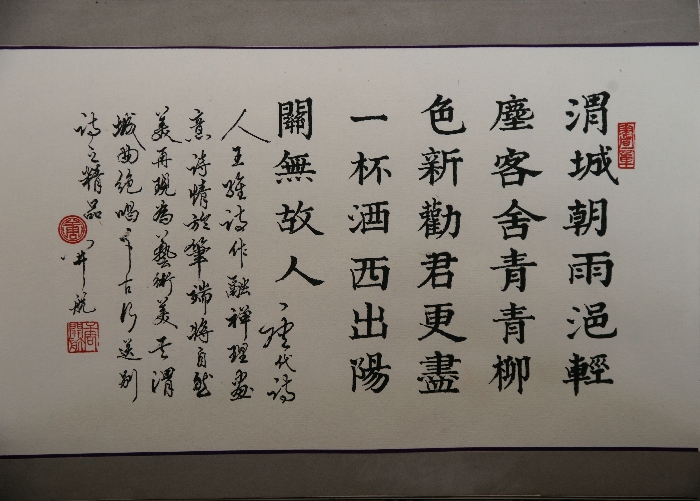 渭城朝雨浥輕
塵客舍青青柳
色新勸君更盡
一杯酒西出陽
關無故人 唐代詩
人王維詩作融禪理畫
意詩情於筆端將自然
美再現為藝術美其渭
城曲絕唱千古送別
詩之精品 航